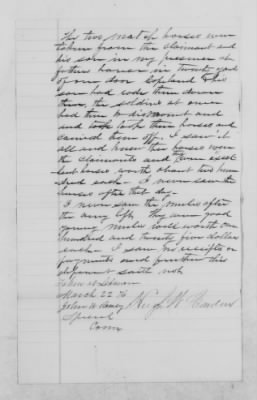 The two match horses were
taken from the claimant and
his son in my presence at
father's house in twenty yards
of my door Copeland & his
son had rode them down
there, the soldiers at once
had them to dismount and
and took both their horses and
carried them off. I saw it
all and knew the horses were
the claimants and were excel
lent horses worth about two hun
dred each. I never saw the
horses after that day.
I never saw the mules after
the army left. They were good
young mules each worth one
hundred and twenty five dollars
each. I saw no receipts or
payments and further this
deponent saith not
March 22 76
John W
Special
Com
Hugh W